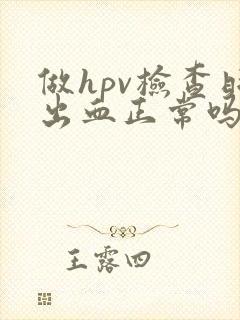 做hpv檢查
出血正常吗
王露四